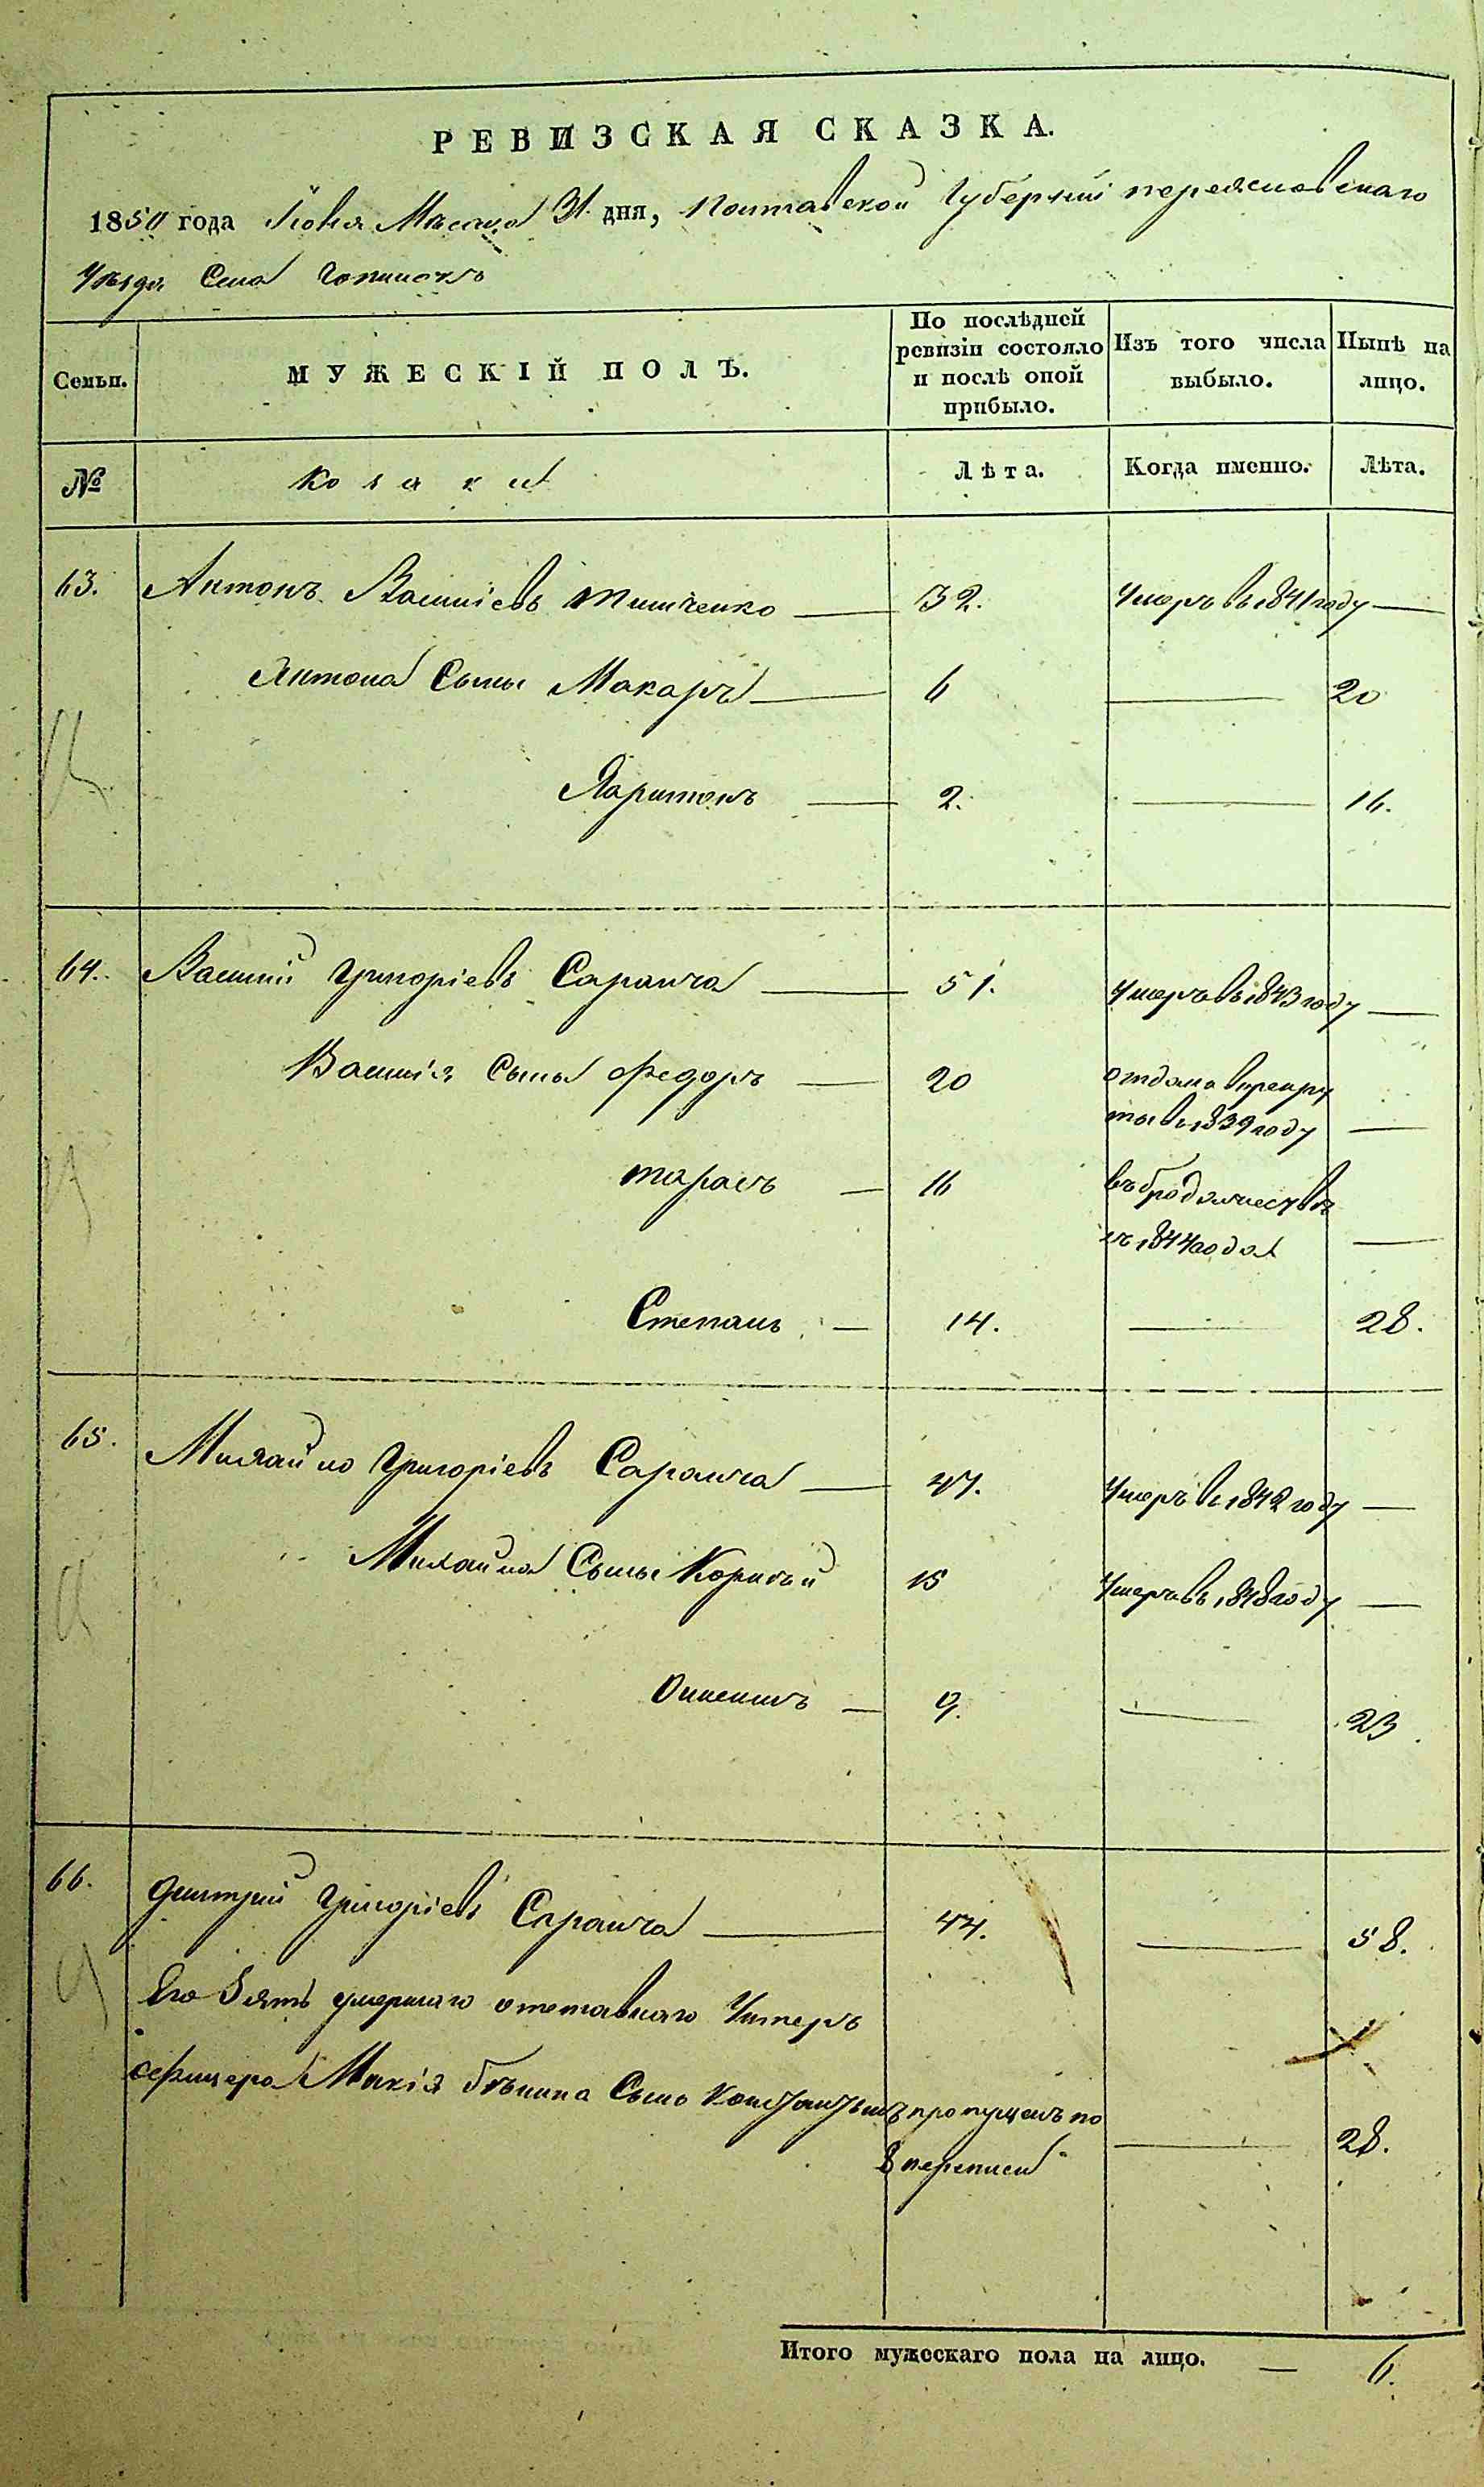 РЕВИЗСКАЯ СКАЗКА.
1850 года Июня Месяца 31 дня, Полтавской Губерніи переяславскаго
Уѣзда Села
Семьи. МУЖЕСКІЙ ПОЛЪ. По послѣдней ревизіи состояло и послѣ оной прибыло. Изъ того числа выбыло. Нынѣ на лицо.
№ козаки Лѣта. Когда именно. Лѣта.
63. Антонъ Василіевъ Тимченко 32. Умеръ въ 1841 году
Антона Сыны Макаръ 6 20
Харитонъ 2. 16.
64. Василий Григоріевъ Саранча 51. Умеръ въ 1843 году
Василія Сыны Федоръ 20 отдана врекру
ты въ 1839 году
Тарасъ 16 въ бродяжествѣ
съ 1844 года
Степанъ 14. 28.
65. Михайло Григоріевъ Саранча 47. Умеръ въ 1842 году
Михайла Сыны Корнѣй 15 Умеръ въ 1848 году
9. 23
66. Дмитрий Григоріевъ Саранча 44. 58.
Его Зять умершаго отставнаго Унтеръ
офицера Сынъ Константинъ пропущенъ по
8 переписи 28.
Итого мужескаго пола на лицо. 6.